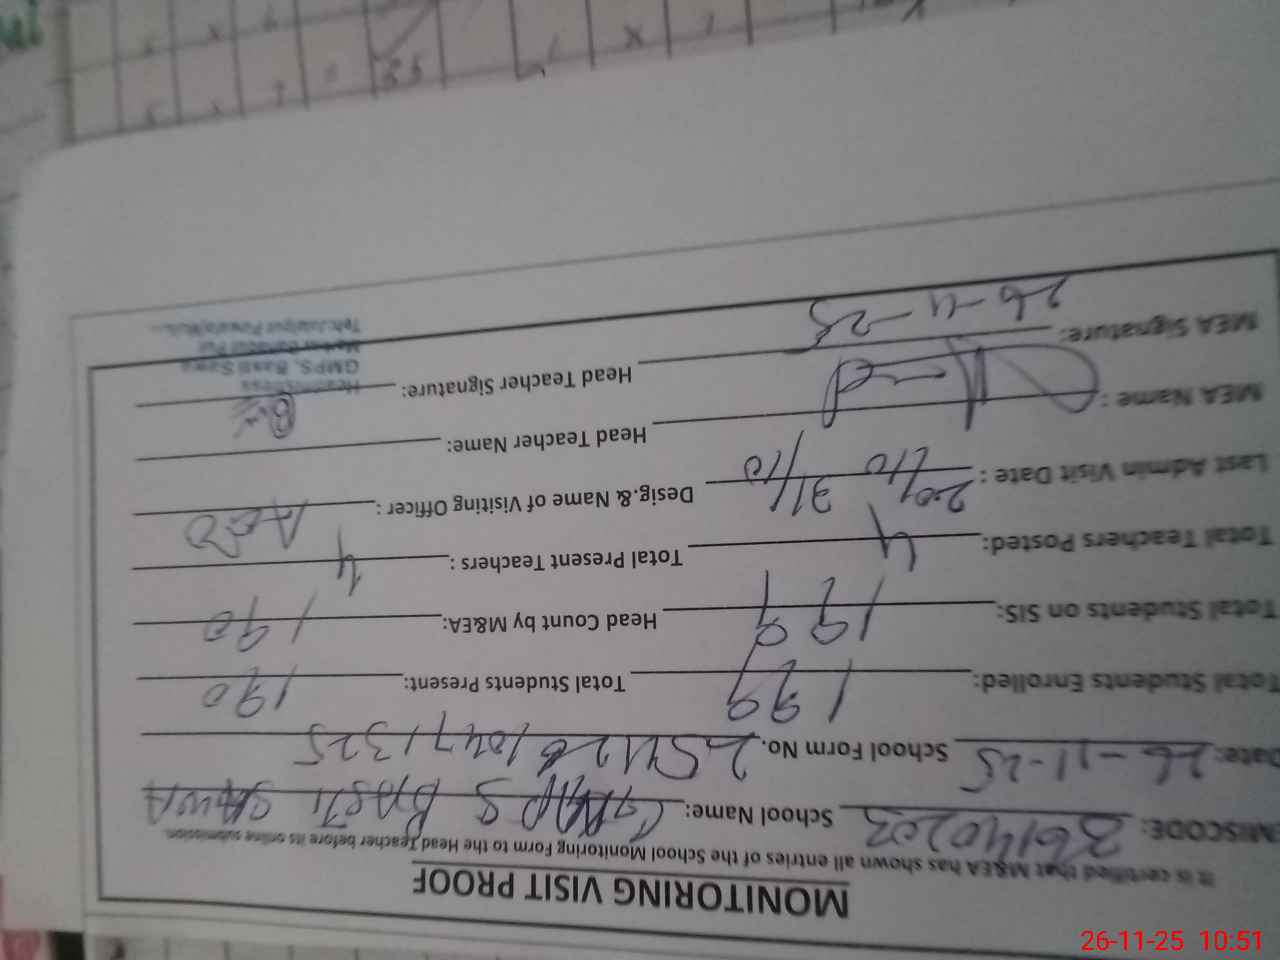 MONITORING VISIT PROOF
It is certified that M&EA has shown all entries of the School Monitoring Form to the Head Teacher before its online submission.
MISCODE: 36140203 School Name: GMPS BASTI SAWA
Date: 26-11-25 School Form No. 25112610471325
Total Students Enrolled: 199 Total Students Present: 190
Total Students on SIS: 199 Head Count by M&EA: 190
Total Teachers Posted: 4 Total Present Teachers: 4
Last Admin Visit Date: 31/10 Desig.& Name of Visiting Officer: AEO
MEA Name: Head Teacher Name:
MEA Signature: 26-11-25 Head Teacher Signature:
Headmistress
GMPS, Basti Sawa
26-11-25 10:51